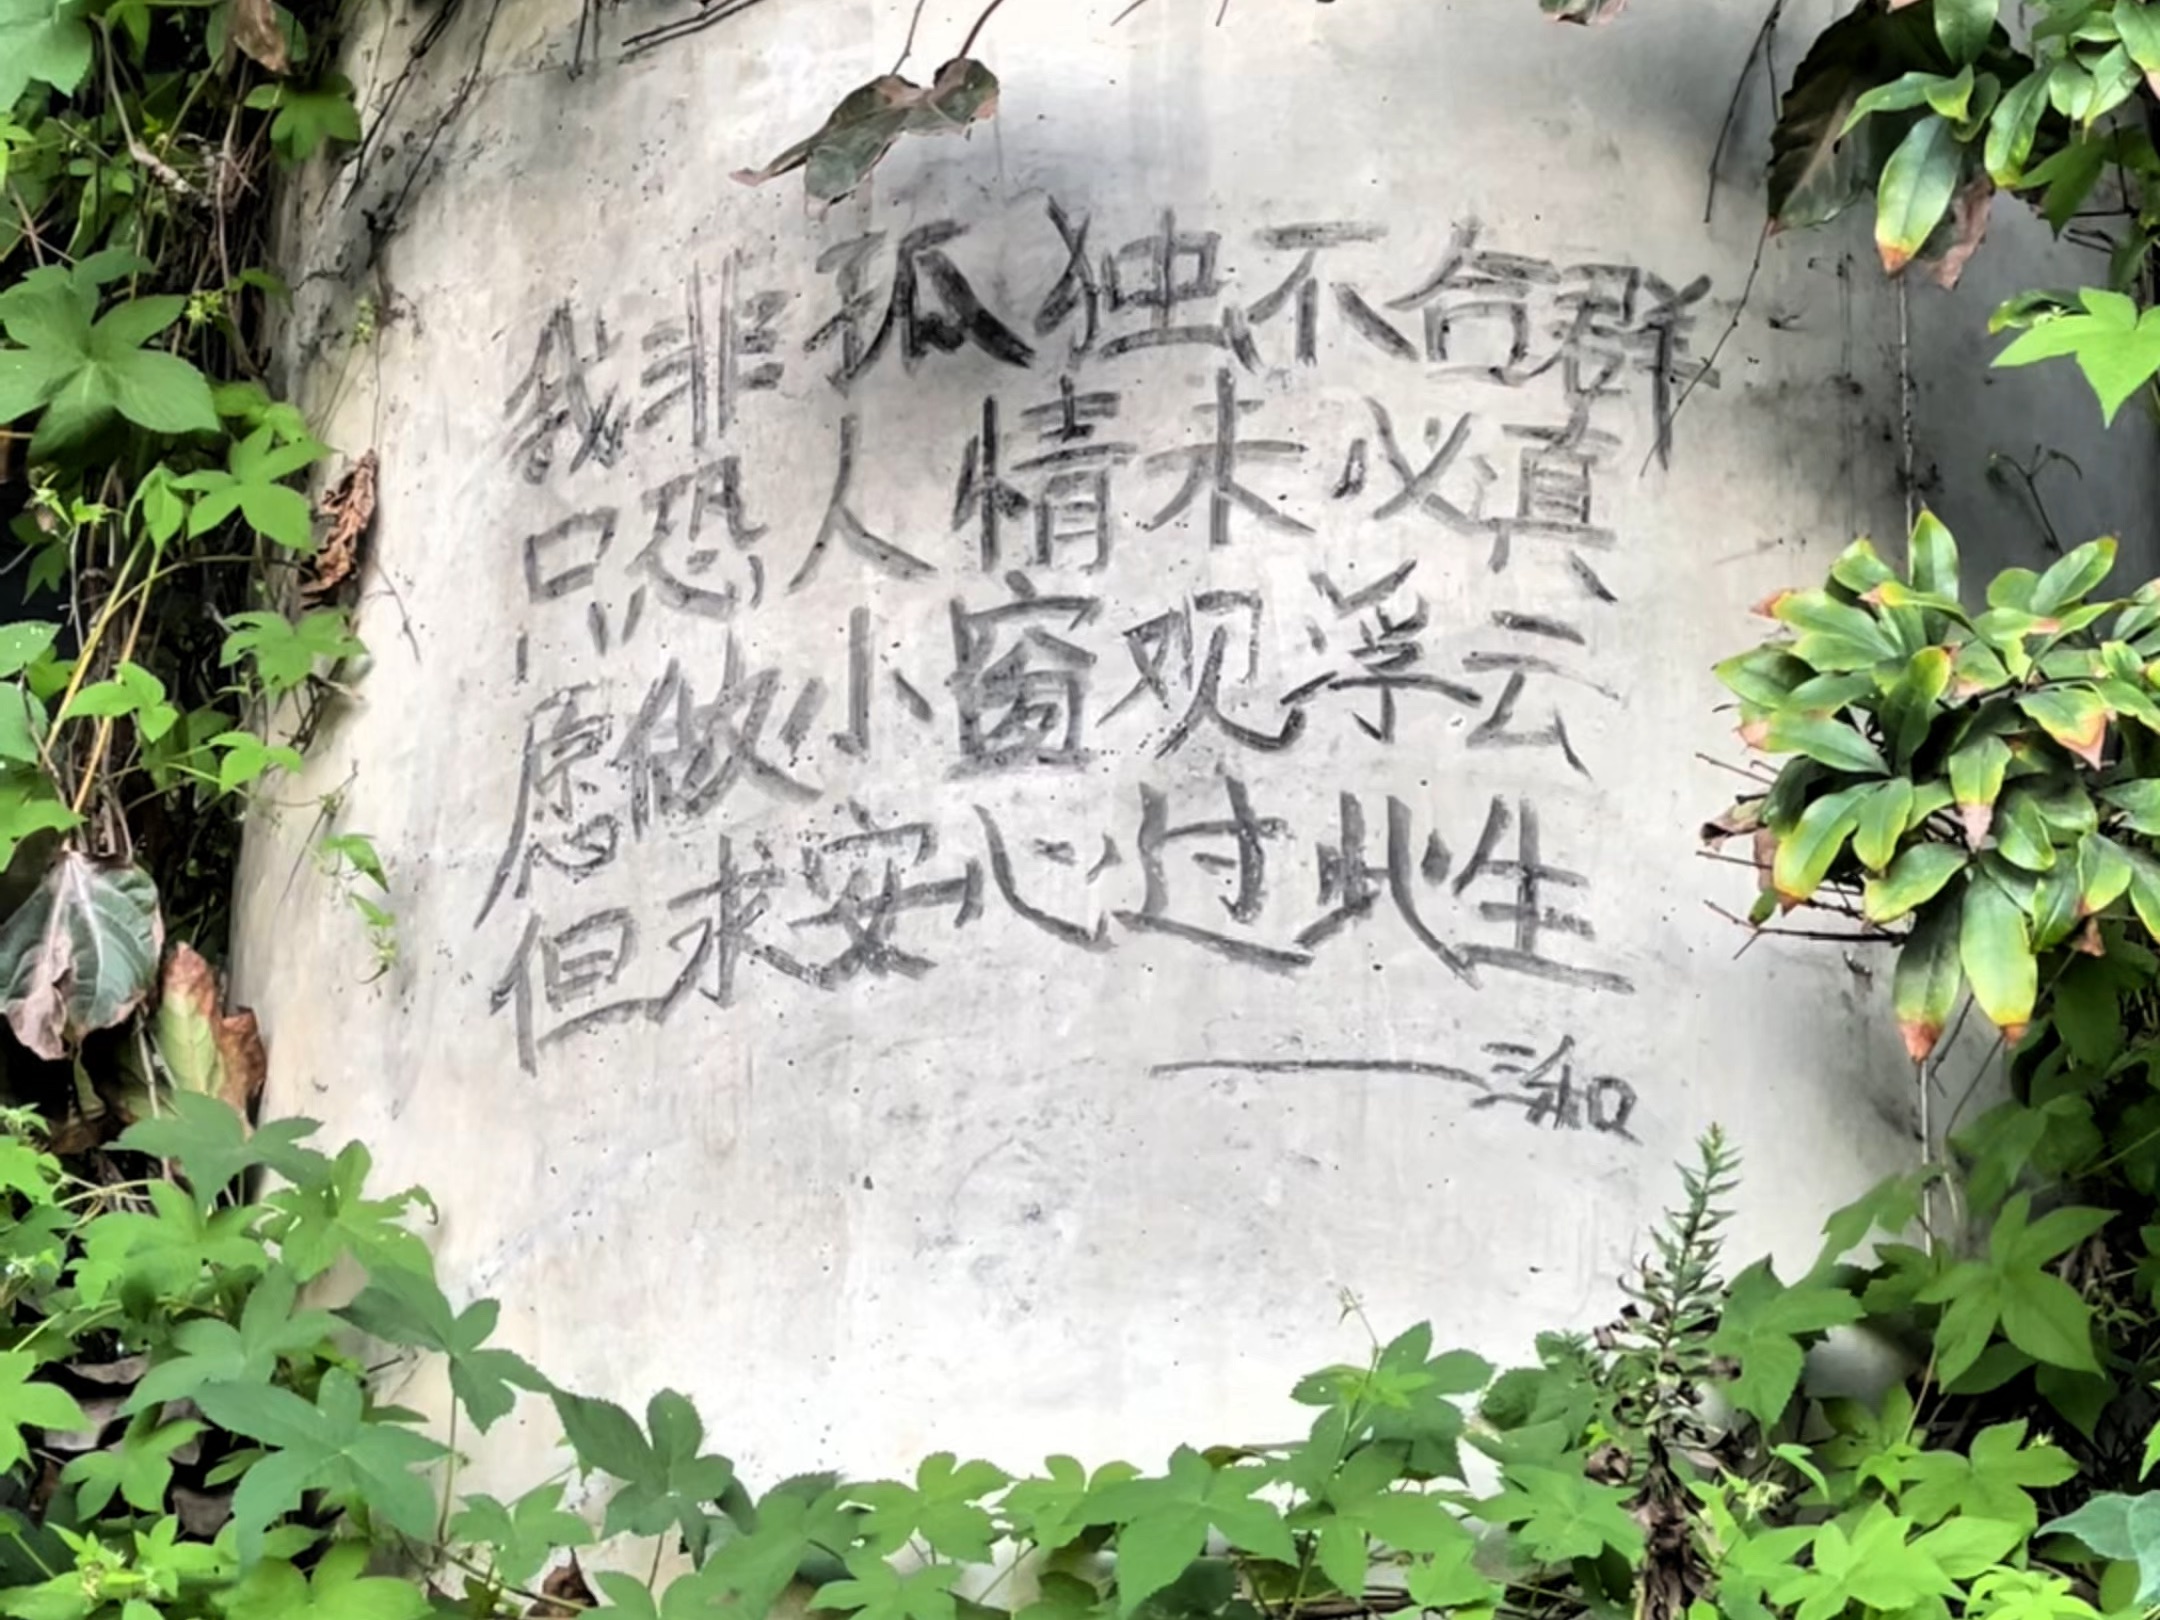 我非孤独不合群
只恐人情未必真
愿做小窗观浮云
但求安心过此生